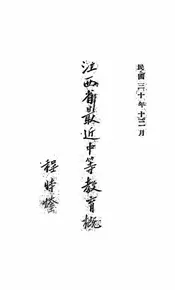 民國三十年十二月
江西省最近中等教育概
程時煃